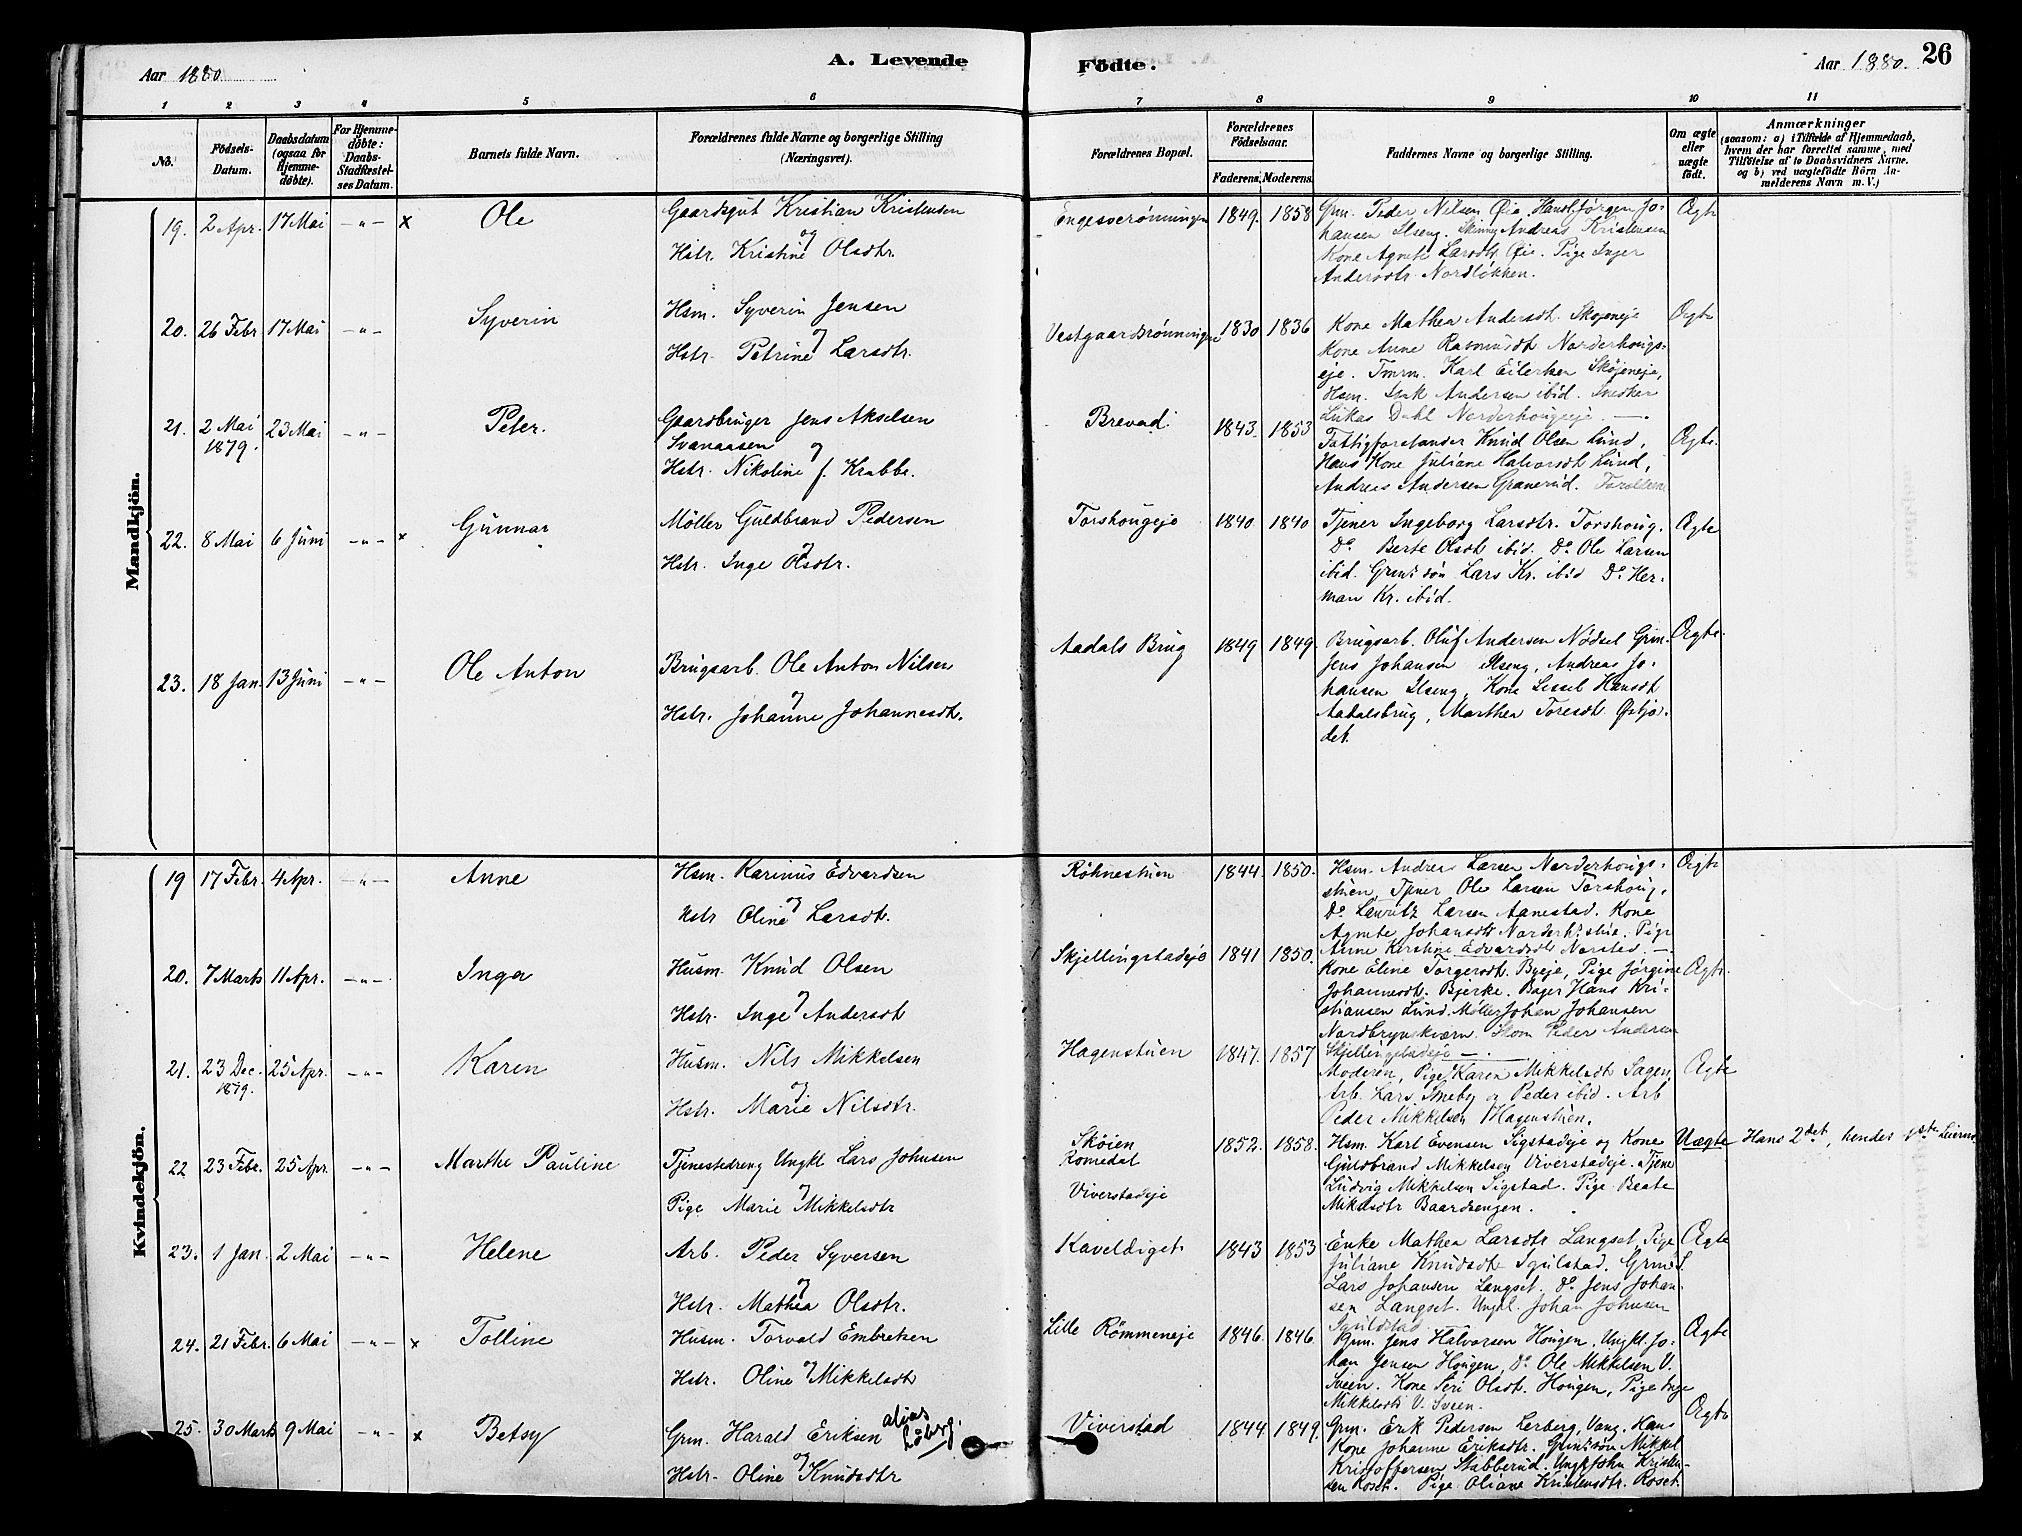 Aar 1880.
A. Levende
Födte.
Aar 1880.
26
1 2 3 4 5 6 7 8 9 10 11
No.
Födsels-
Datum.
Daabsdatum
(ogsaa for
Hjemme-
döbte).
For Hjemme-
döbte:
Daabs-
Stadfæstel-
ses Datum.
Barnets fulde Navn.
Forældrenes fulde Navne og borgerlige Stilling
(Næringsvei).
Forældrenes Bopæl.
Forældrenes
Födselsaar.
Faderens. Moderens.
Faddernes Navne og borgerlige Stilling.
Om ægte
eller
uægte
födt.
Anmærkninger
(saasom: a) i Tilfælde af Hjemmedaab,
hvem der har forrettet samme, med
Tilföielse af to Daabsvidners Navne.
og b) ved uægtefödte Börn An-
melderens Navn m. V.)
Mandkjön.
19. 2 Apr. 17 Mai -"- x Ole
Gaardsgut Kristian Kristensen
og
Hstr. Kristine Olsdtr.
1849. 1858
Grm. Peder Nilsen Øie, Jørgen Jo-
hansen Ilseng. Andreas Kristensen
Kone Agnete Larsdt. Øie. Pige Inger
Andersdtr. Nordløkken.
Ægte
20. 26 Febr 17 Mai -"- Syverin
Hsm. Syverin Jensen
og
Hstr. Petrine Larsdtr.
1830 1836
Kone Mathea Andersdt. Skøieneje
Kone Anne Rasmusdt Norderhougs-
eje. Tmrm. Karl Eilertsen Skøjeneje,
Hsm. Andersen ibid. Snedker
Lukas Dahl Norderhougseje. —
Ægte
21. 2 Mai 1879. 23 Mai -"- Peter.
Gaardbruger Jens Akselsen
Svanaasen og
Hstr. Nikoline f. Krabbe.
1843. 1853
Fattigforstander Knud Olsen Lund,
Hans Kone Juliane Halvorsdt Lund,
Andreas Andersen Granerud. Forældrene
Ægte.
22. 8 Mai 6 Juni -"- x Gunnar
Møller Guldbrand Pedersen
og
Hstr. Inge Olsdtr.
Torshougeje 1840 1840
Tjener Ingeborg Larsdtr. Torshoug.
Do Berte Olsdt ibid. Do Ole Larsen
ibid. Grmd. søn Lars Kr. ibid Do Her-
man Kr. ibid.
Ægte
23. 18 Jan. 13 Juni -"- Ole Anton
Brugsarb. Ole Anton Nilsen
og
Hstr. Johanne Johannesdt.
Aadals Brug 1849 1849.
Brugsarb. Oluf Andersen Nødsel Grm.
Jens Johansen Ilseng, Andreas Jo-
hansen Ilseng, Kone Sissel Hansdt
Aadalsbrug, Marthea Toresdt.
Ægte.
Kvindekjön.
19 17 Febr. 4 Apr. -"- Anne
Hsm. Karinus Edvardsen
og
Hstr Oline Larsdt.
Röhnestuen 1844. 1850.
Hsm. Andreas Larsen Norderhougs-
stuen, Tjener Ole Larsen Torshoug,
Do. Lauritz Larsen Aanestad. Kone
Agnete Johansdt Pige
Anne Kirstine Edvardsdt —.
Ægte
20. 7 Marts 11 Apr. -"- Inga
Husm. Knud Olsen
og
Hstr. Inge Andersdt
Skjellingstadeje 1841 1850.
Kone Eline Torgersdt. Byeje, Pige Jørgine
Johannesdt. Bjerke. Bager Hans Kri-
stiansen Lund. Møller Johan Johansen
Nordbrynskværn. Hsm Peder Andersen
Skjellingstadeje —.
Ægte.
21. 23 Dec. 1879. 25 Apr. -"- Karen
Husm. Nils Mikkelsen
og
Hstr. Marie Nilsdtr.
Hagenstuen 1847. 1857
Moderen, Pige Karen Mikkelsdt Sagen,
Arb. Lars Smeby og Peder ibid. Arb
Peder Mikkelsen Hagenstuen.
Ægte
22 23 Febr. 25 Apr -"- Marthe Pauline
Tjenestedreng Ungkl Lars Johnsen
og
Pige Marie Mikkelsdtr
Skøien
Romedal
Viverstadeje
1852. 1858.
Hsm. Karl Evensen Sigstadeje og Kone
Guldbrand Mikkelsen Viverstadeje. Tjene
Ludvig Mikkelsen Sigstad. Pige Beate
Mikelsdtr Baardsengen.
Uægte
Hans 2det, hendes 1ste Leierm.
23. 1 Jan. 2 Mai -"- Helene
Arb. Peder Syversen
og
Hstr. Mathea Olsdtr.
Kaveldiget 1843 1853
Enke Mathea Larsdtr Langset, Pige
Juliane Knudsdt Grmd S.
Lars Johansen Langset. Do. Jens Johan-
sen Langset. Ungkl. Johan Johnsen
Ægte
24. 21 Febr. 6 Mai -"- x Tolline
Husm. Torvald Embretsen
og
Hstr. Oline Mikkelsdt
Lille Rømmeneje 1846. 1846.
Grm. Jens Halvorsen Hougen, Ungkl. Jo-
han Jensen Hougen, Do Ole Mikkelsen V.
Sveen. Kone Siri Olsdt. Hougen, Pige Inge
Mikkelsdt V. Sveen.
Ægte
25. 30 Marts 9 Mai -"- x Betsy
Grm. Harald Eriksen alias Löberg.
og
Hstr. Oline Knudsdtr
Viverstad 1844 1849.
Grm. Erik Pedersen Lerberg, Vang, Hans
Kone Johanne Eriksdtr. Grmd.søn Mikkel
Kristoffersen Stabberud. Ungk. John Kristen-
sen Roset. Pige Oliane Kristensdtr. Roset.
Ægte